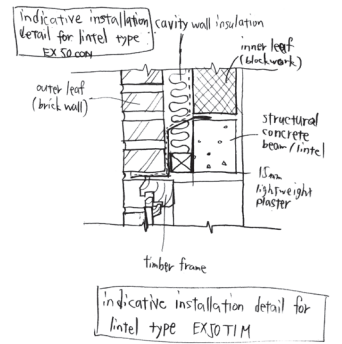 indicative installation
detail for lintel type
EX50CON
cavity wall insulation
inner leaf
(blockwork)
outer leaf
(brick wall)
structural
concrete
beam/lintel
15mm
lightweight
plaster
timber frame
indicative installation detail for
lintel type EX50TIM